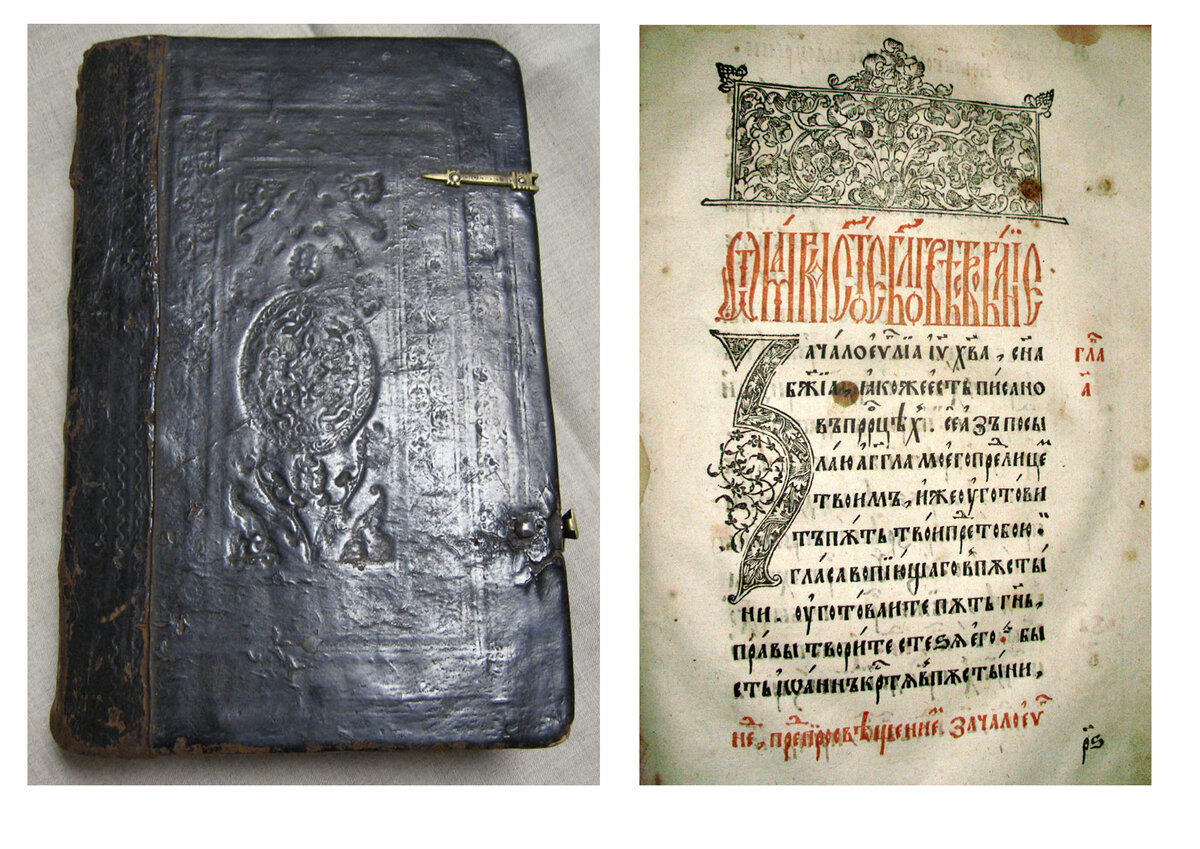 ѿ ма́рка ст҃о́е бл҃говѣствова́нїе
За ча́ло є҆ѵⷢ҇лїа і҆ѵ҃ хв҃а, сн҃а
бж҃їѧ, ꙗ҆́коже є҆стъ пи́сано
въ прⷪ҇ро́цѣхъ. се а҆зъ посы
ла́ю а҆́гг҃ла моего̀ преⷣ лице́ⷨ
твои́мъ, и҆́же ᲂу҆гото́ви
тъ пꙋ́ть тво́и преⷣ тобо́ю :
гла́са вопїю́щаго в пꙋсты́
ни. ᲂу҆гото́ваите пꙋ́ть гн҃ь,
пра́вы твори́те стеѕѧ̀ є҆го̀ : бы
сть і҆ѡа́ннъ крⷭ҇тѧ̀ в пꙋсты́ни,
неⷣ, преⷣ просвѣще́нїеⷨ. зача́ло є҆ѵⷢ҇
гла҃
а҃
р҃ѕ